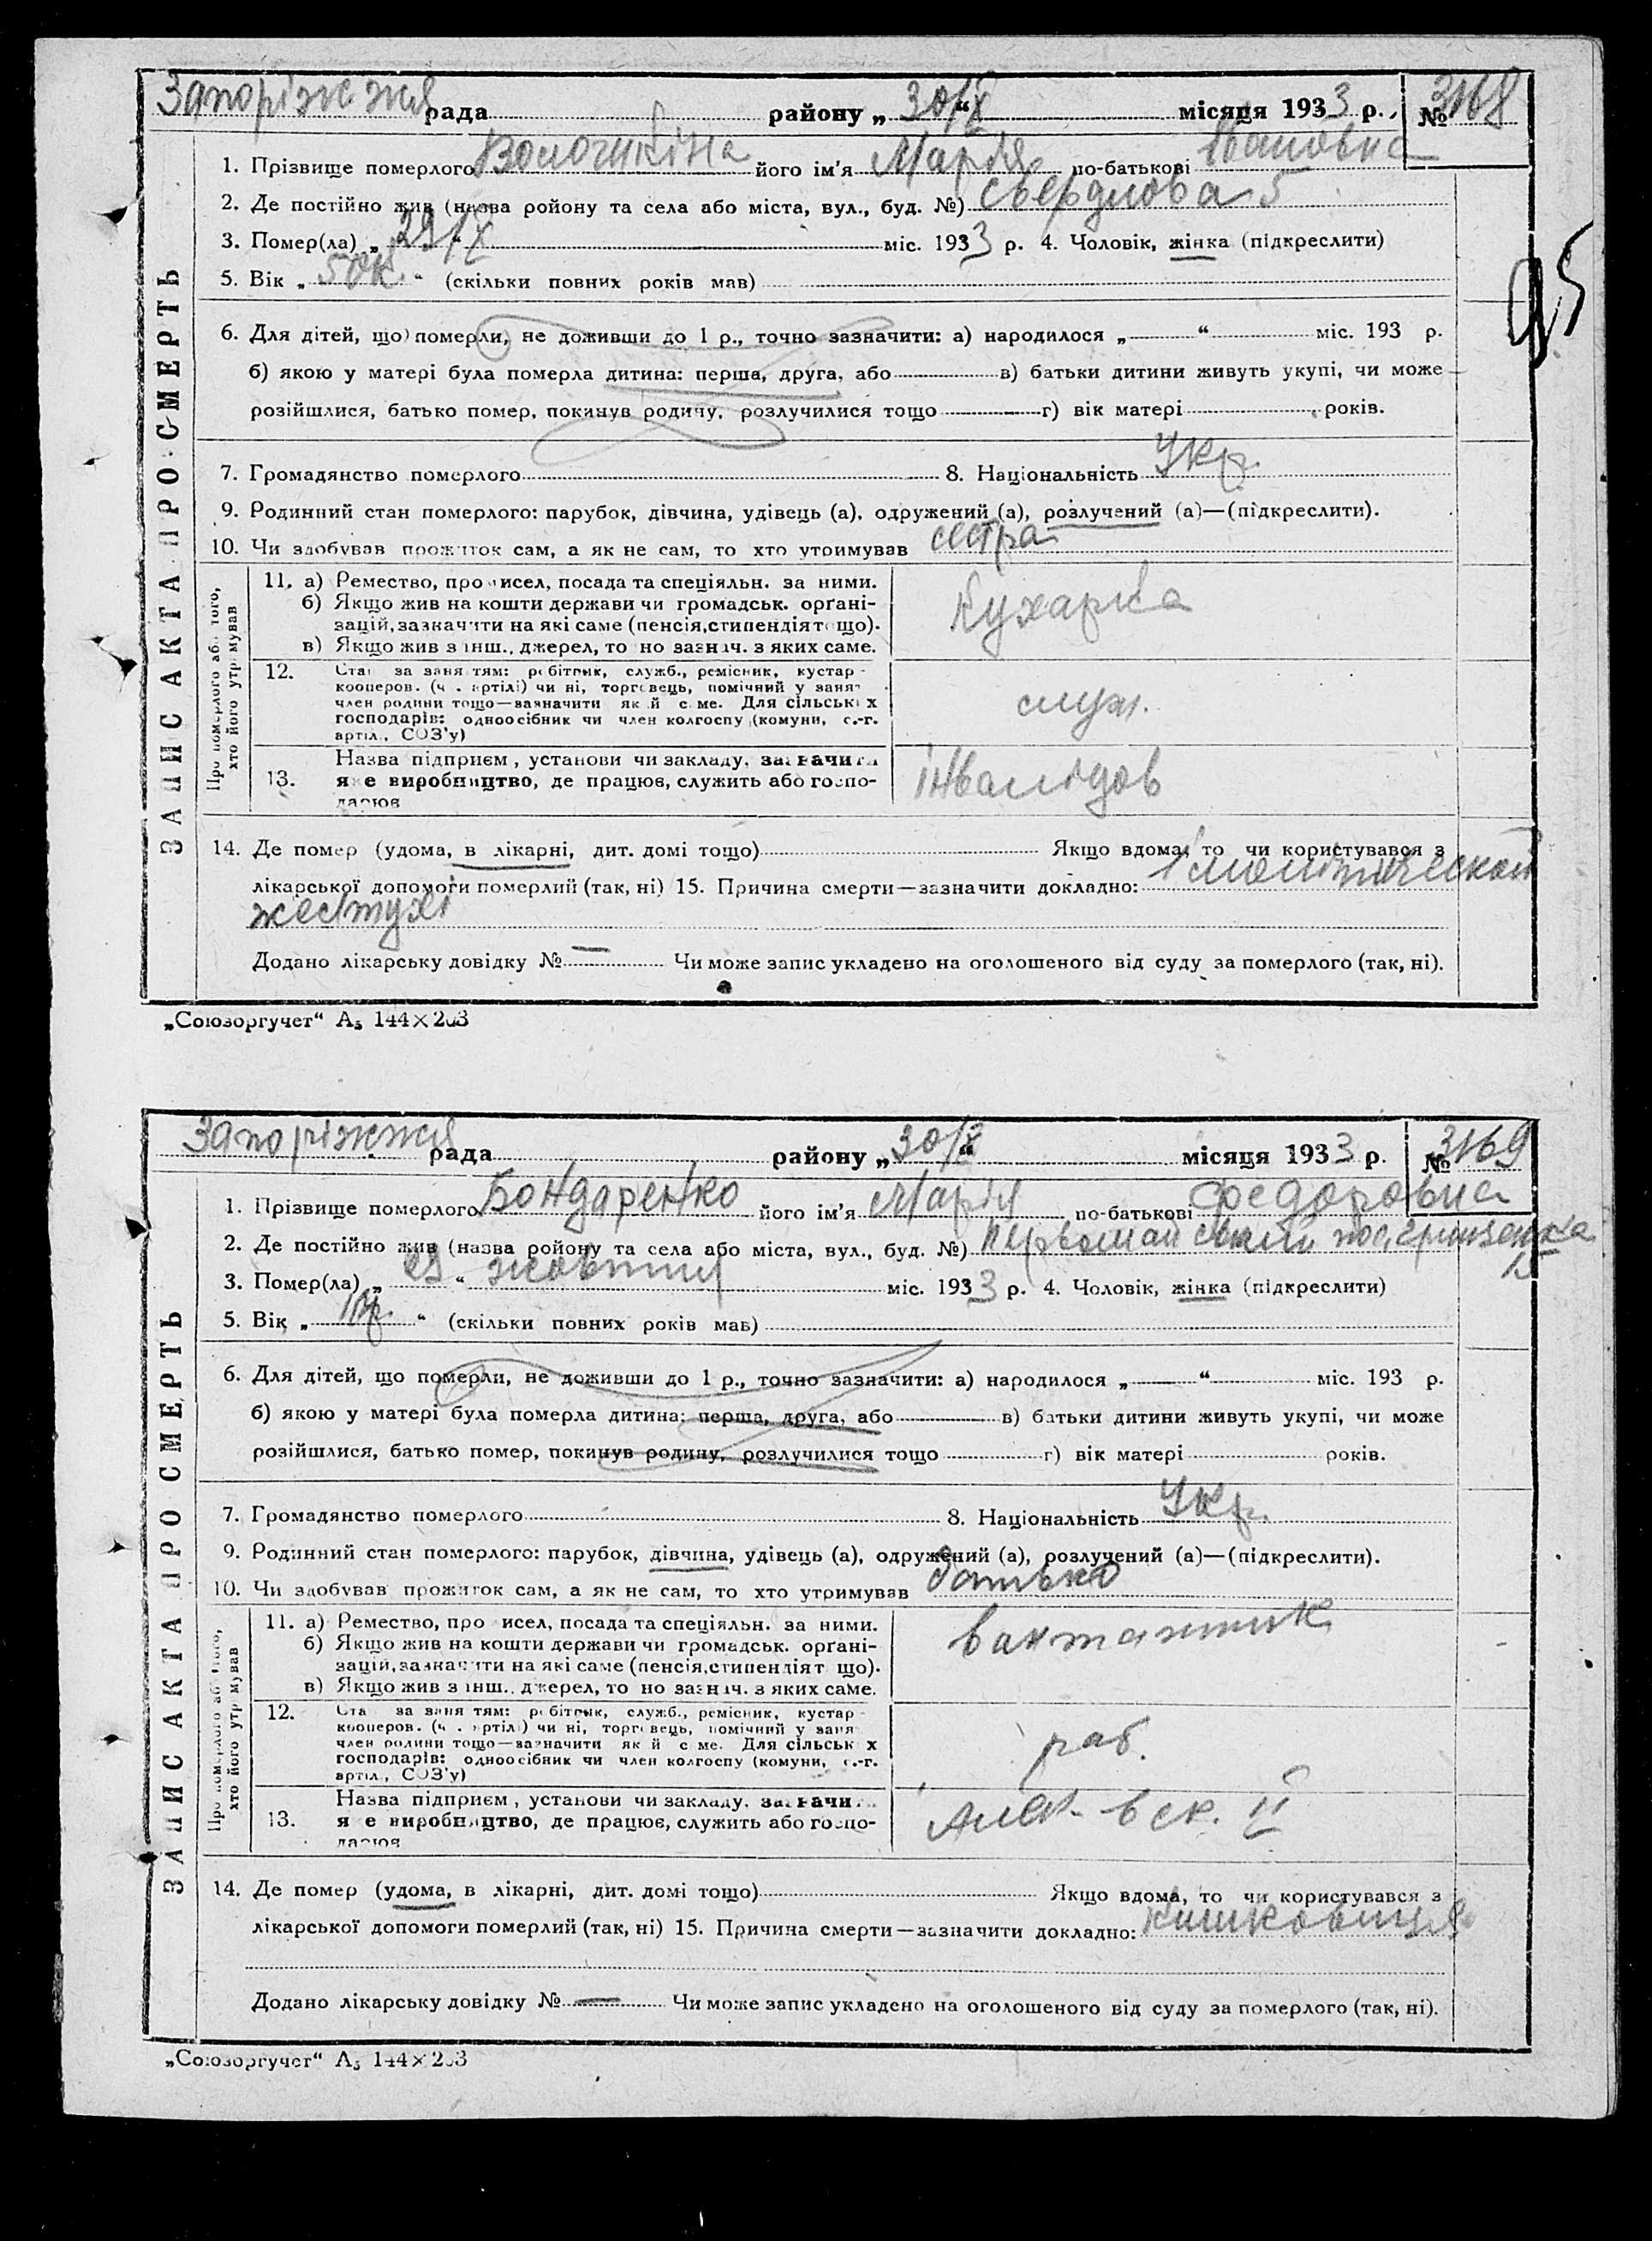 Запоріжжя рада района „ 30/X “ місяця 1933 р., № 3168
1. Прізвище померлого Волочикіна його ім'я Марія по-батькові Івановна
2. Де постійно жив (назва ройону та села або міста, вул., буд. №) Свердлова 5
3. Помер(ла) „ 29/X “ міс. 1933 р. 4. Чоловік, жінка (підкреслити)
5. Вік „ “ (скільки повних років мав)
95
6. Для дітей, що померли, не доживши до 1 р., точно зазначити: а) народилося „ “ міс. 193 р.
б) якою у матері була померла дитина: перша, друга, або в) батьки дитини живуть укупі, чи може
розійшлися, батько помер, покинув родину, розлучилися тощо г) вік матері років.
7. Громадянство померлого 8. Національність Укр.
9. Родинний стан померлого: парубок, дівчина, удівець (а), одружений (а), розлучений (а)—(підкреслити).
10. Чи здобував прожиток сам, а як не сам, то хто утримував сестра
ЗАПИС АКТА ПРО СМЕРТЬ
Про померлого або того,
хто його утримував
11. а) Ремество, промисел, посада та спеціяльн. за ними.
б) Якщо жив на кошти держави чи громадськ. орґані-
зацій, зазначити на які саме (пенсія, стипендія тощо).
в) Якщо жив з інш. джерел, точно зазнач. з яких саме.
Кухарка
12. Стан за заняттям: робітник, служб., ремісник, кустар
кооперов. (ч. артілі) чи ні, торговець, помічний у занят
член родини тощо—зазначити який саме. Для сільських
господарів: одноосібник чи член колгоспу (комуни, с.-г.
артіл., СОЗ'у)
служ.
13. Назва підприєм, установи чи закладу, зазначити
яке виробництво, де працює, служить або госпо-
дарює
інвалідов
14. Де помер (удома, в лікарні, дит. домі тощо) Якщо вдома, то чи користувався з
лікарської допомоги померлий (так, ні) 15. Причина смерти—зазначити докладно:
Додано лікарську довідку № — Чи може запис укладено на оголошеного від суду за померлого (так, ні).
„Союзоргучет“ А₅ 144×203
Запоріжжя рада району „ 30/X “ місяця 1933 р. № 3169
1. Прізвище померлого Бондаренко його ім'я Марія по-батькові Федоровна
2. Де постійно жив (назва ройону та села або міста, вул., буд. №) Первомайський пос. Грищенка
15
3. Помер(ла) „ 29 “ жовтня міс. 1933 р. 4. Чоловік, жінка (підкреслити)
5. Вік „ 1 р. “ (скільки повних років мав)
6. Для дітей, що померли, не доживши до 1 р., точно зазначити: а) народилося „ “ міс. 193 р.
б) якою у матері була померла дитина: перша, друга, або в) батьки дитини живуть укупі, чи може
розійшлися, батько помер, покинув родину, розлучилися тощо г) вік матері років.
7. Громадянство померлого 8. Національність Укр.
9. Родинний стан померлого: парубок, дівчина, удівець (а), одружений (а), розлучений (а)—(підкреслити).
10. Чи здобував прожиток сам, а як не сам, то хто утримував батько
ЗАПИС АКТА ПРО СМЕРТЬ
Про померлого або того,
хто його утримував
11. а) Ремество, промисел, посада та спеціяльн. за ними.
б) Якщо жив на кошти держави чи громадськ. орґані-
зацій, зазначити на які саме (пенсія, стипендія тощо).
в) Якщо жив з інш. джерел, точно зазнач. з яких саме.
вантажник
12. Стан за заняттям: робітник, служб., ремісник, кустар
кооперов. (ч. артілі) чи ні, торговець, помічний у занят
член родини тощо—зазначити який саме. Для сільських
господарів: одноосібник чи член колгоспу (комуни, с.-г.
артіл., СОЗ'у)
раб.
13. Назва підприєм, установи чи закладу, зазначити
яке виробництво, де працює, служить або госпо-
дарює
Алек-вск. II
14. Де помер (удома, в лікарні, дит. домі тощо) Якщо вдома, то чи користувався з
лікарської допомоги померлий (так, ні) 15. Причина смерти—зазначити докладно:
Додано лікарську довідку № — Чи може запис укладено на оголошеного від суду за померлого (так, ні).
„Союзоргучет“ А₅ 144×203